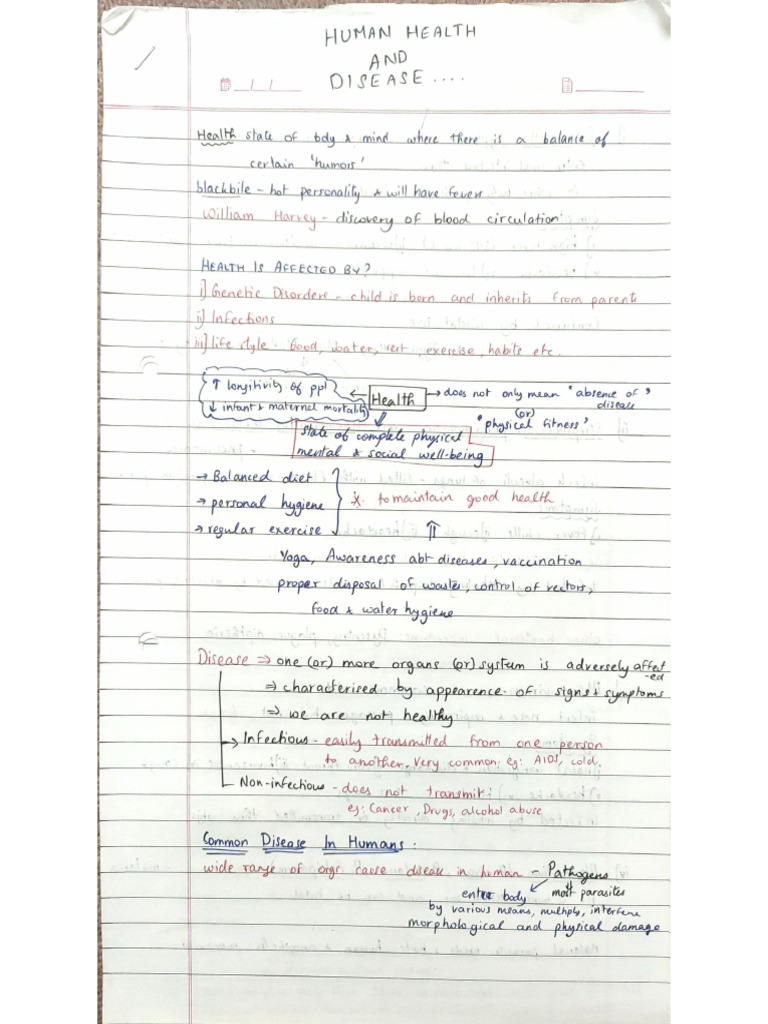 HUMAN HEALTH
AND
DISEASE....
Health state of body & mind where there is a balance of
certain 'humors'
blackbile - hot personality & will have fever
William Harvey - discovery of blood circulation
HEALTH IS AFFECTED BY?
i] Genetic Disorders - child is born and inherits from parents
ii] Infections
iii] life style - food, water, rest, exercise, habits etc.
↑ longitivity of ppl
↓ infant & maternal mortality
← Health → does not only mean 'absence of' disease
(or)
'physical fitness'
state of complete physical
mental & social well-being
→ Balanced diet
→ personal hygiene
→ regular exercise
* to maintain good health
⇑
Yoga, Awareness abt diseases, vaccination
proper disposal of waster, control of vectors,
food & water hygiene
Disease ⇒ one (or) more organs (or) system is adversely affect
-ed
⇒ characterised by appearence of signs & symptoms
⇒ we are not healthy
→ Infectious - easily transmitted from one person
to another. Very common; eg: AIDS, cold.
Non-infectious - does not transmit
eg: Cancer, Drugs, alcohol abuse
Common Disease In Humans:
wide range of orgs cause disease in human - Pathogens
enter body
most parasites
by various means, multiply, interfere
morphological and physical damage